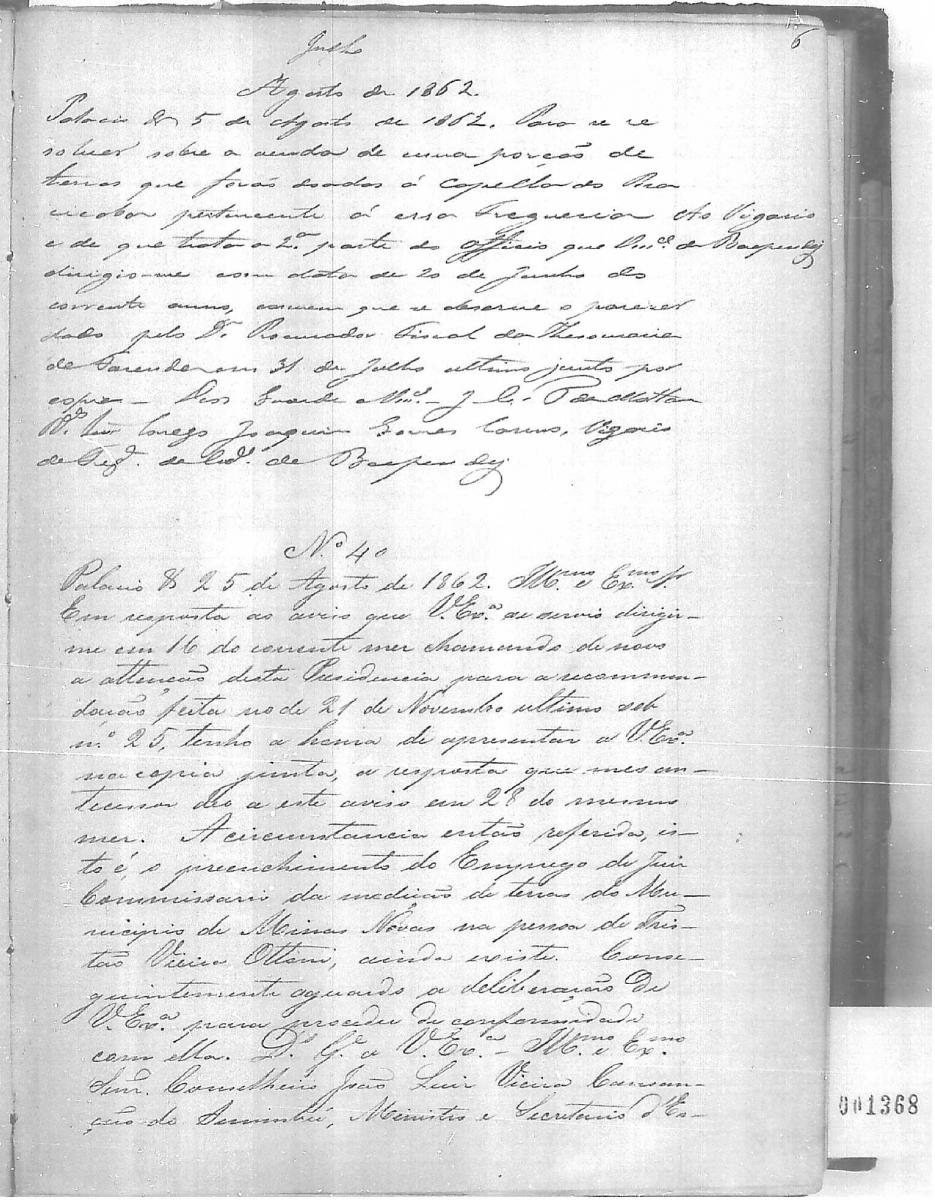 6
Julho
Agosto de 1862.
Palacio &ª 5 de Agosto de 1862. Para se re
solver sobre a venda de uma porção de
terras que forão doadas á Capella do
pertencente á essa Freguesia Ao Vigario
e de que trata a 2ª parte do officio que Vmcê. de Baependy
dirigio-me com data de 20 de Junho do
corrente anno, convem que se observe o parecer
dado pelo Dr. Procurador Fiscal da Thesouraria
de Fazenda em 31 de Julho ultimo junto por
copia - Deos Guarde a Vmcê. - J. C. P. da Motta
Rdo. Snr. Conego Joaquim Gomes Carmo, Vigario
da Fregª. da Cidª. de Baependy
N.º 40
Palacio &ª 25 de Agosto de 1862. Illmo. e Exmo. Sr.
Em resposta ao aviso que V.Exª. se servio dirigir-
me em 16 do corrente mez chamando de novo
a attenção desta Presidencia para a recommen-
dação feita no de 21 de Novembro ultimo sob
n.º 25, tenho a honra de apresentar a V.Exª.
na copia junta, a resposta que meo an-
tecessor deo a este aviso em 28 do mesmo
mez. A circunstancia então referida, is-
to é, o preenchimento do Emprego de Juiz
Commissario da medição de terras do Mu-
nicipio de Minas Novas na pessoa de Tris-
tão Vieira Ottoni, ainda existe. Conse-
quintemente aguardo a deliberação de
V.Exª. para proceder de conformidade
com ella. Ds. Ge. a V.Exª. - Illmo. e Exmo.
Senr. Conselheiro João Luiz Vieira Cansan-
ção do Sinimbú, Ministro e Secretario d'Es-
001368